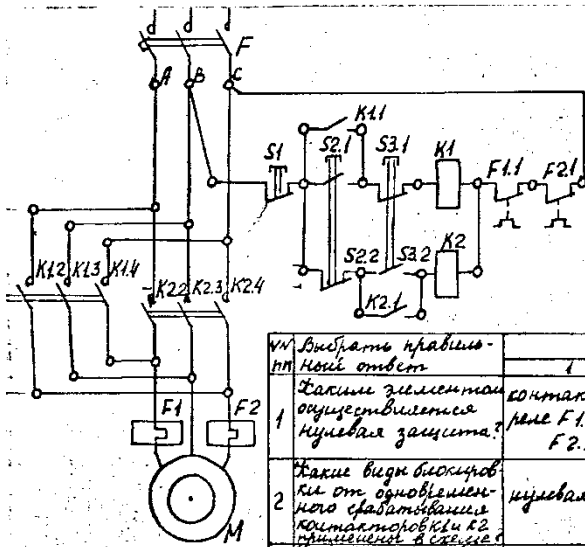 F
A B C
K1.1
S1 S2.1 S3.1 K1 F1.1 F2.1
S2.2 S3.2 K2
K2.1
K1.2 K1.3 K1.4 K2.2 K2.3 K2.4
F1 F2
M
№№ пп Выбрать правиль-
ный ответ
1
1 Каким элементом
осуществляется
нулевая защита?
контак
реле F1.
F2.
2 Какие виды блокиров-
ки от одновремен-
ного срабатывания
контакторов К1 и К2
применены в схеме?
нулевая